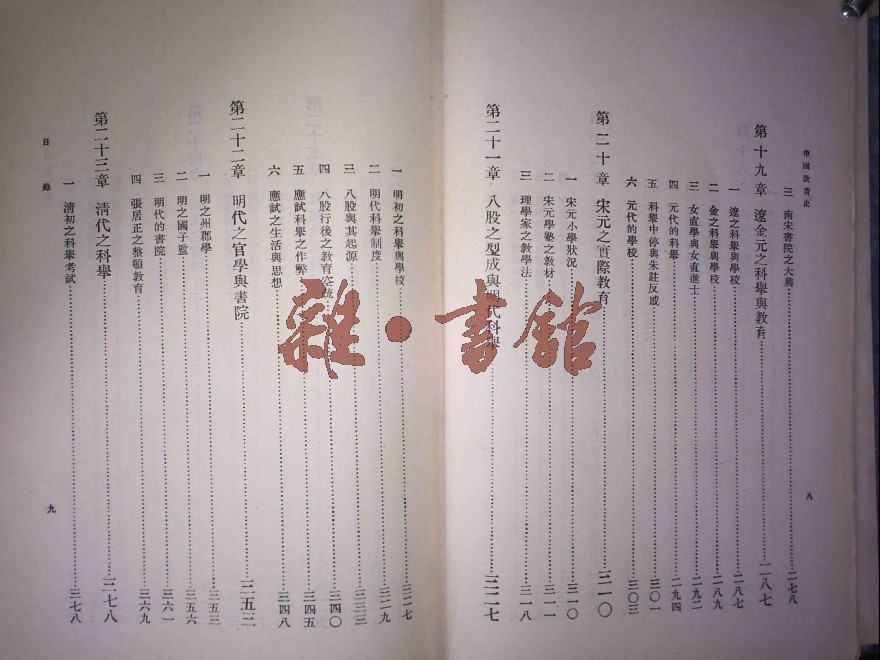 中國教育史
三 南宋書院之大興 二七八
第十九章 遼金元之科舉與教育 二八七
一 遼之科舉與學校 二八七
二 金之科舉與學校 二八九
三 女直學與女直進士 二九二
四 元代的科舉 二九四
五 科舉中停與朱註反感 三〇一
六 元代的學校 三〇三
第二十章 宋元之實際教育 三一〇
一 宋元小學狀況 三一〇
二 宋元學塾之教材 三一一
三 理學家之教學法 三一八
第二十一章 八股之型成與明代科舉 三二七
八
一 明初之科舉與學校 三二七
二 明代科舉制度 三二九
三 八股與其起源 三三三
四 八股行後之教育空疏 三四〇
五 應試科舉之作弊 三四五
六 應試之生活與思想 三四八
第二十二章 明代之官學與書院 三五二
一 明之州郡學 三五三
二 明之國子監 三五六
三 明代的書院 三六一
四 張居正之整頓教育 三六九
第二十三章 清代之科舉 三七八
一 清初之科舉考試 三七八
目錄
九
雜·書館